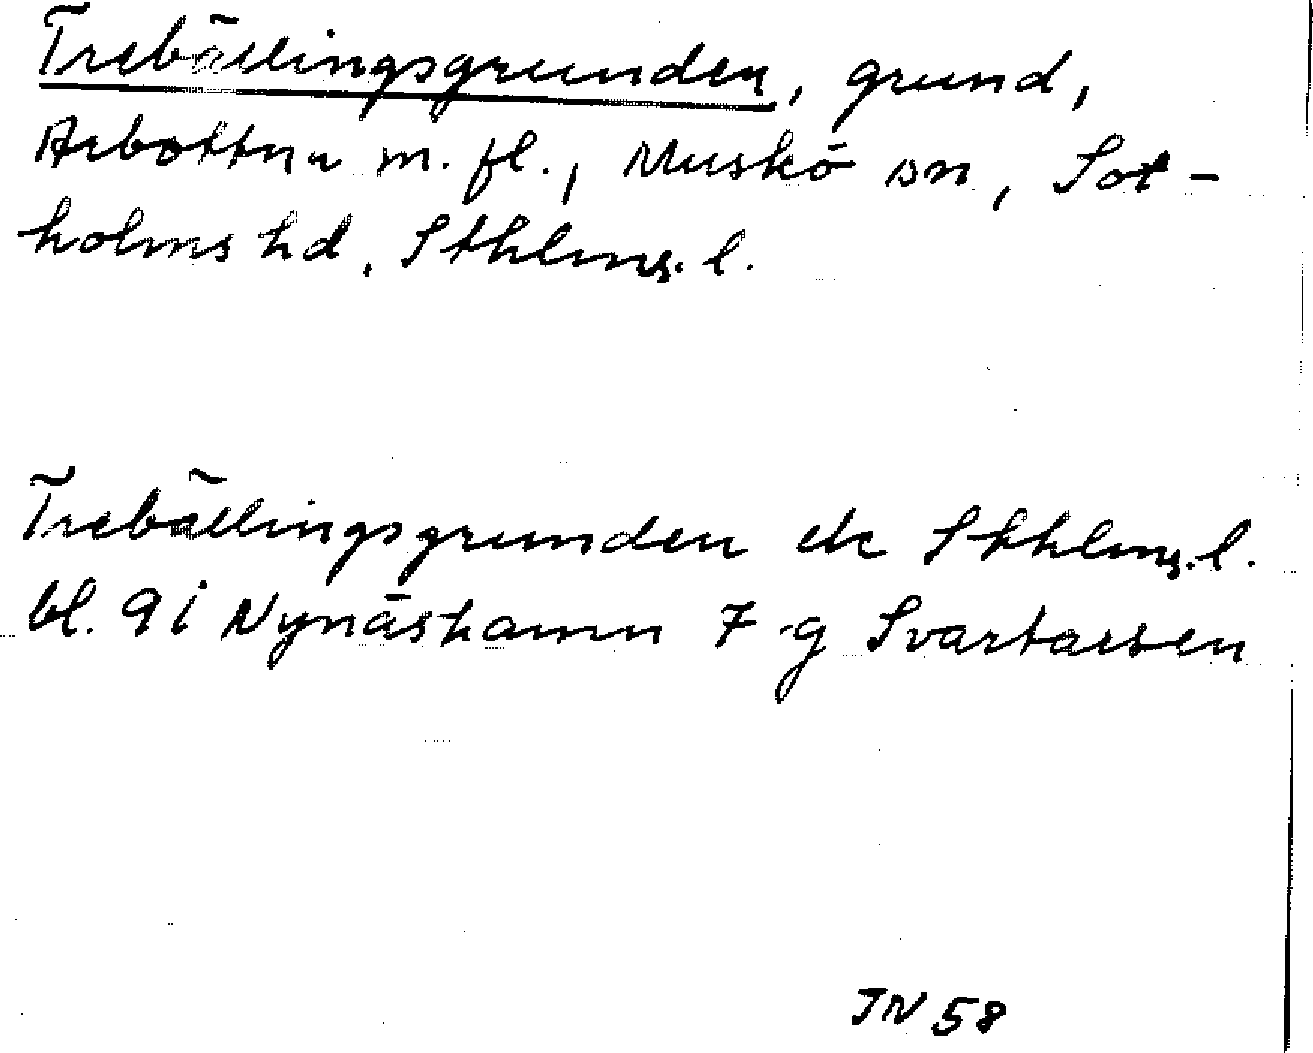 Trebällingsgrunden, grund,
Arbottna m. fl., Muskö sn, Sot-
holms hd, Sthlms. l.
Trebällingsgrunden ek Sthlms. l.
bl. 9 i Nynäshamn 7 g Svartarsen
JN 58